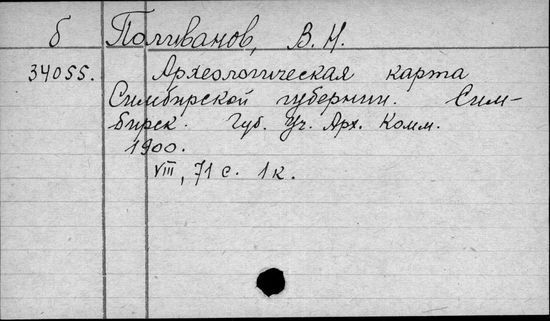 б Поливанов, В. Н.
34055. Археологическая карта
Симбирской губернии. Сим-
бирск. Губ. Уч. Арх. Комм.
1900.
VIII, 71 с. 1 к.